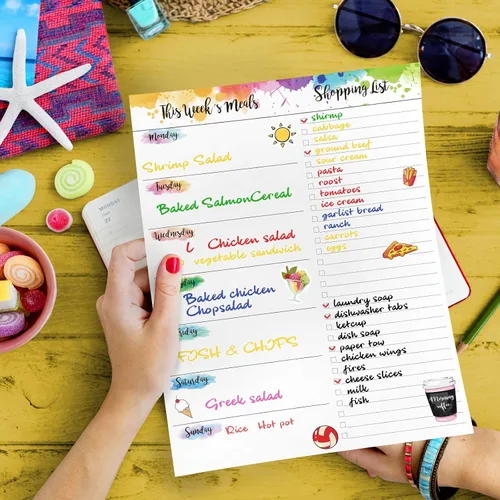 This Week's Meals
Monday
Shrimp Salad
Tuesday
Baked SalmonCereal
Wednesday
L Chicken salad
vegetable sandwich
Baked chicken
Chopsalad
FOSH & CHOPS
Saturday
Greek salad
Sunday
Rice Hot pot
Shopping List
shirmp
cabbage
salsa
ground beef
sour cream
pasta
roost
tomatoes
ice cream
garlist bread
ranch
carrots
eggs
laundry soap
dishwasher tabs
ketcup
dish soap
paper tow
chicken wings
fires
cheese slices
milk
fish
Morning
coffee
MONDAY